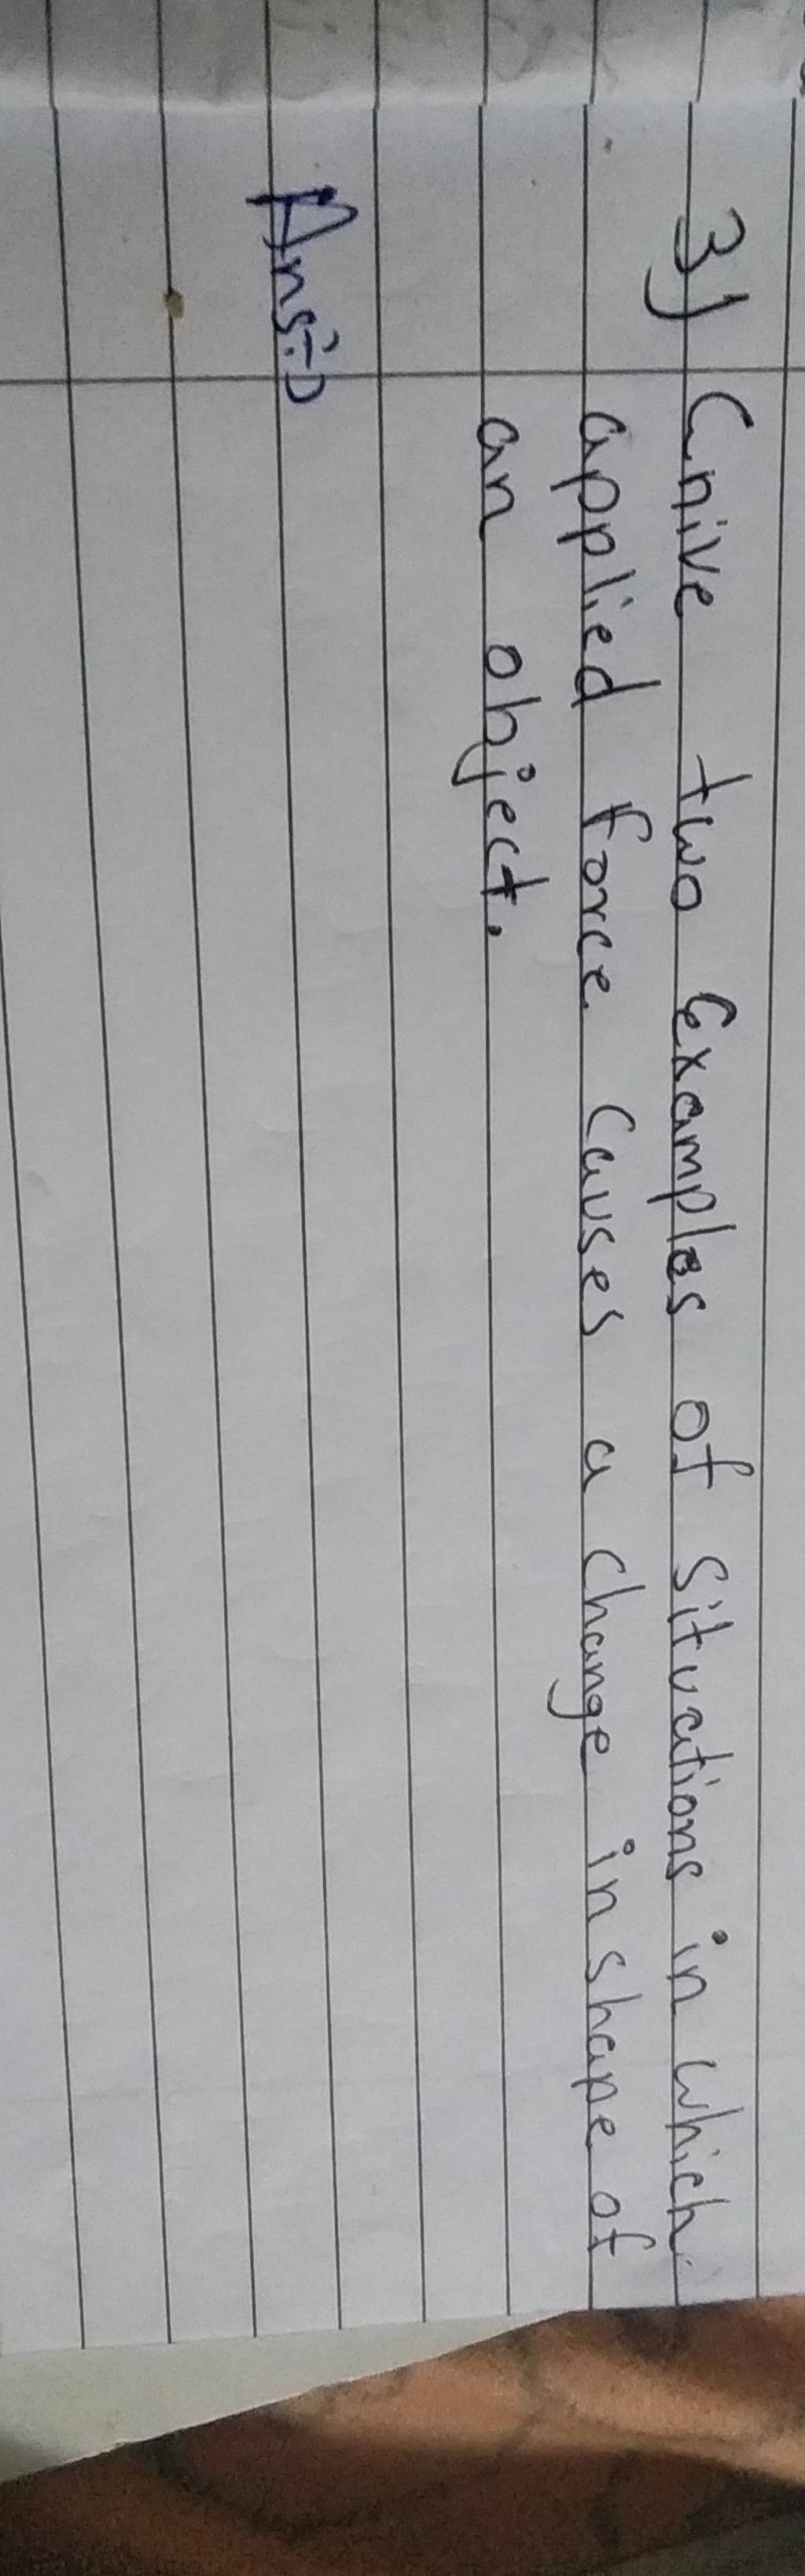 3) Give two Examples of situations in which
applied force causes a change in shape of
an object.
Ans:-)